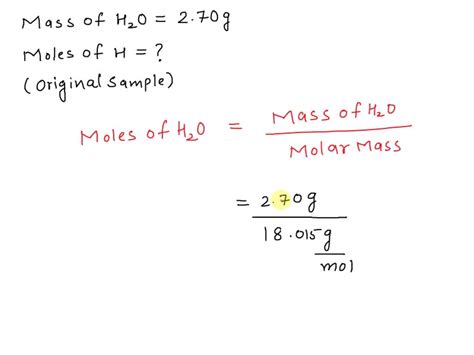 Mass of H₂O = 2.70g
Moles of H = ?
(Original Sample)
Moles of H₂O = Mass of H₂O / Molar Mass
= 2.70g / 18.015g/mol